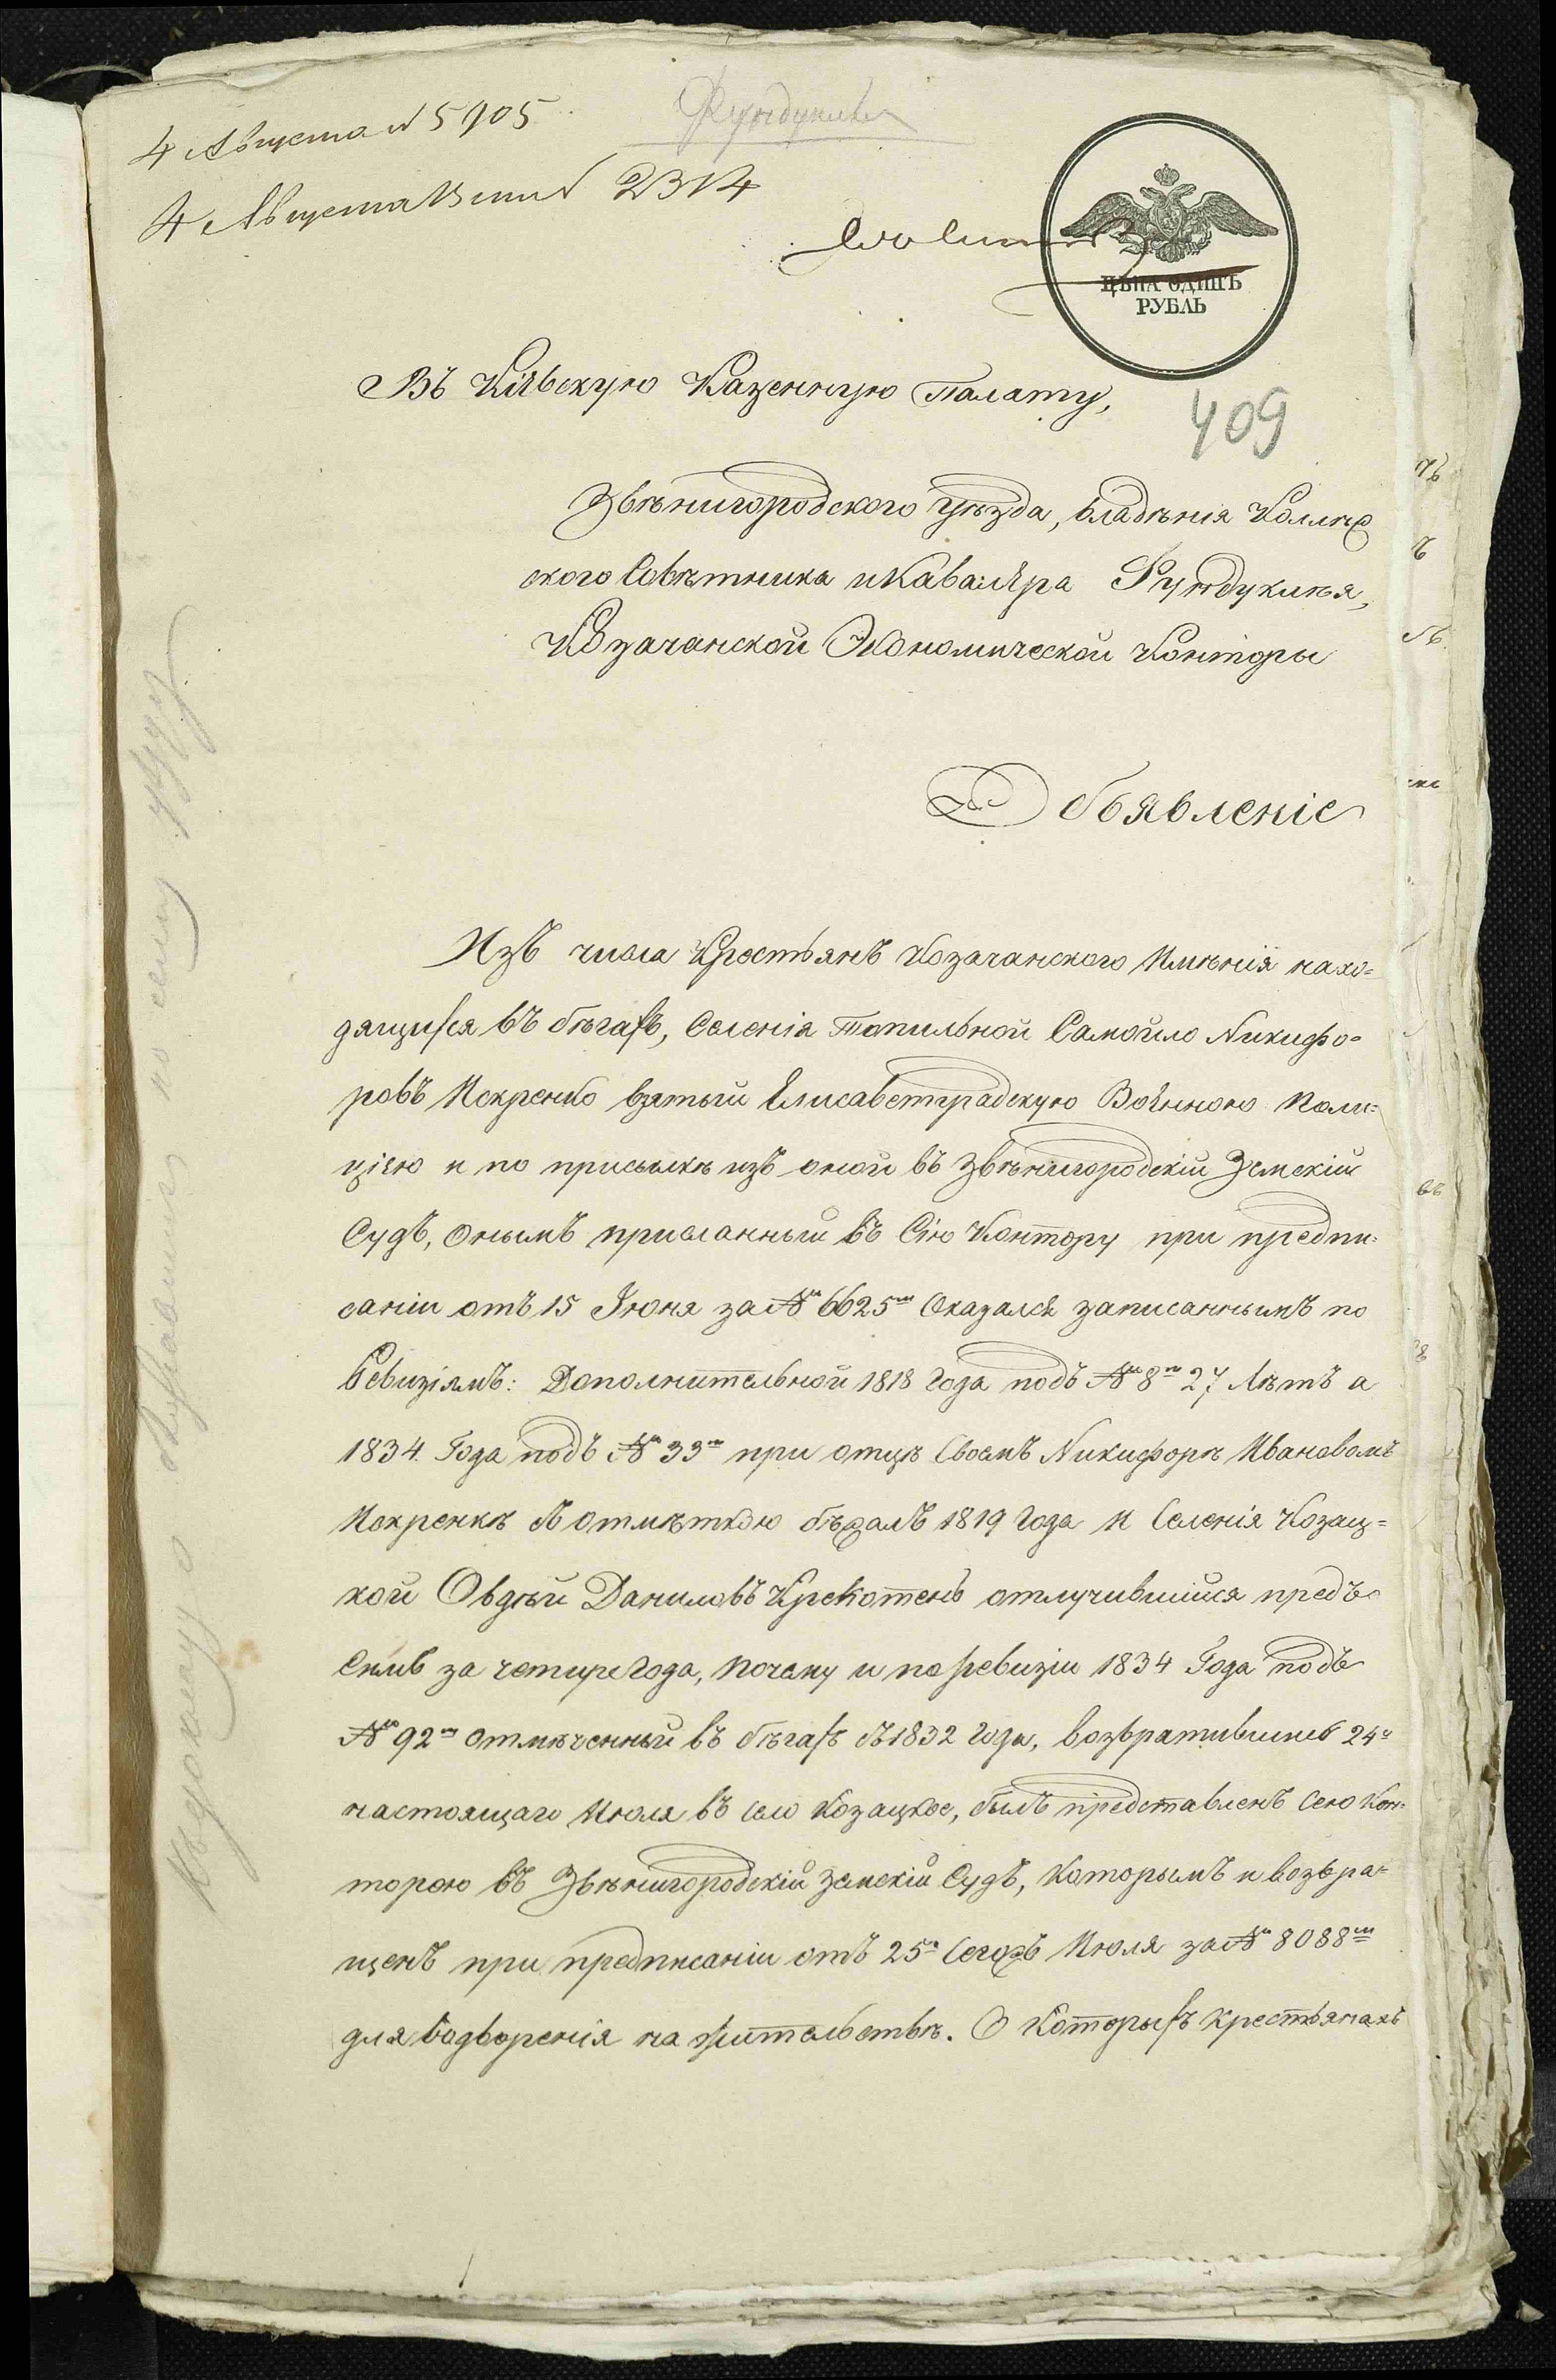 4 Августа № 5905
4 Августа 2314
Фундуклея
ЦѢНА ОДИНЪ
РУБЛЬ
Въ Кіевскую Казенную Палату,
409
Звѣнигородского уѣзда, владѣнія Коллеж
ского Совѣтника и Кавалера Фундуклѣя,
Козачанской Экономической Конторы
Объявленіе
Изъ числа Крестьянъ Козачанского Имѣнія нахо=
дящихся въ бѣгахъ, Селенія Топильной Самойло Никифо=
ровъ Искренко взятый Елисаветградскую Военною Поли=
ціею и по присылкѣ изъ оной въ Звѣнигородскій Земскій
Судъ, онымъ присланный въ Сію Контору при предпи=
саніи отъ 15 Іюня за № 6625м Оказался записаннымъ по
Ревизіямъ: Дополнительной 1818 Года подъ № 8м 27 Лѣтъ а
1834 Года подъ № 33м при отцѣ Своемъ Никифорѣ Ивановомъ
Искренкѣ съ отмѣткою бѣжалъ 1819 Года и Селенія Козац=
кой Овдѣй Даниловъ Крекотень отлучившійся предъ
Симъ за четире Года, Почему и по ревизіи 1834 Года подъ
№ 92м отмѣченный въ бѣгахъ съ 1832 Года, возвратившись 24го
настоящаго Июля въ село Козацкое, былъ представленъ Сею Кон=
торою въ Звѣнигородскій Земскій Судъ, Которымъ и возвра=
щенъ при предписаніи отъ 25го Сегожъ Июля за № 8088м
для водворенія на жительствѣ. О Которыхъ Крестьянахъ